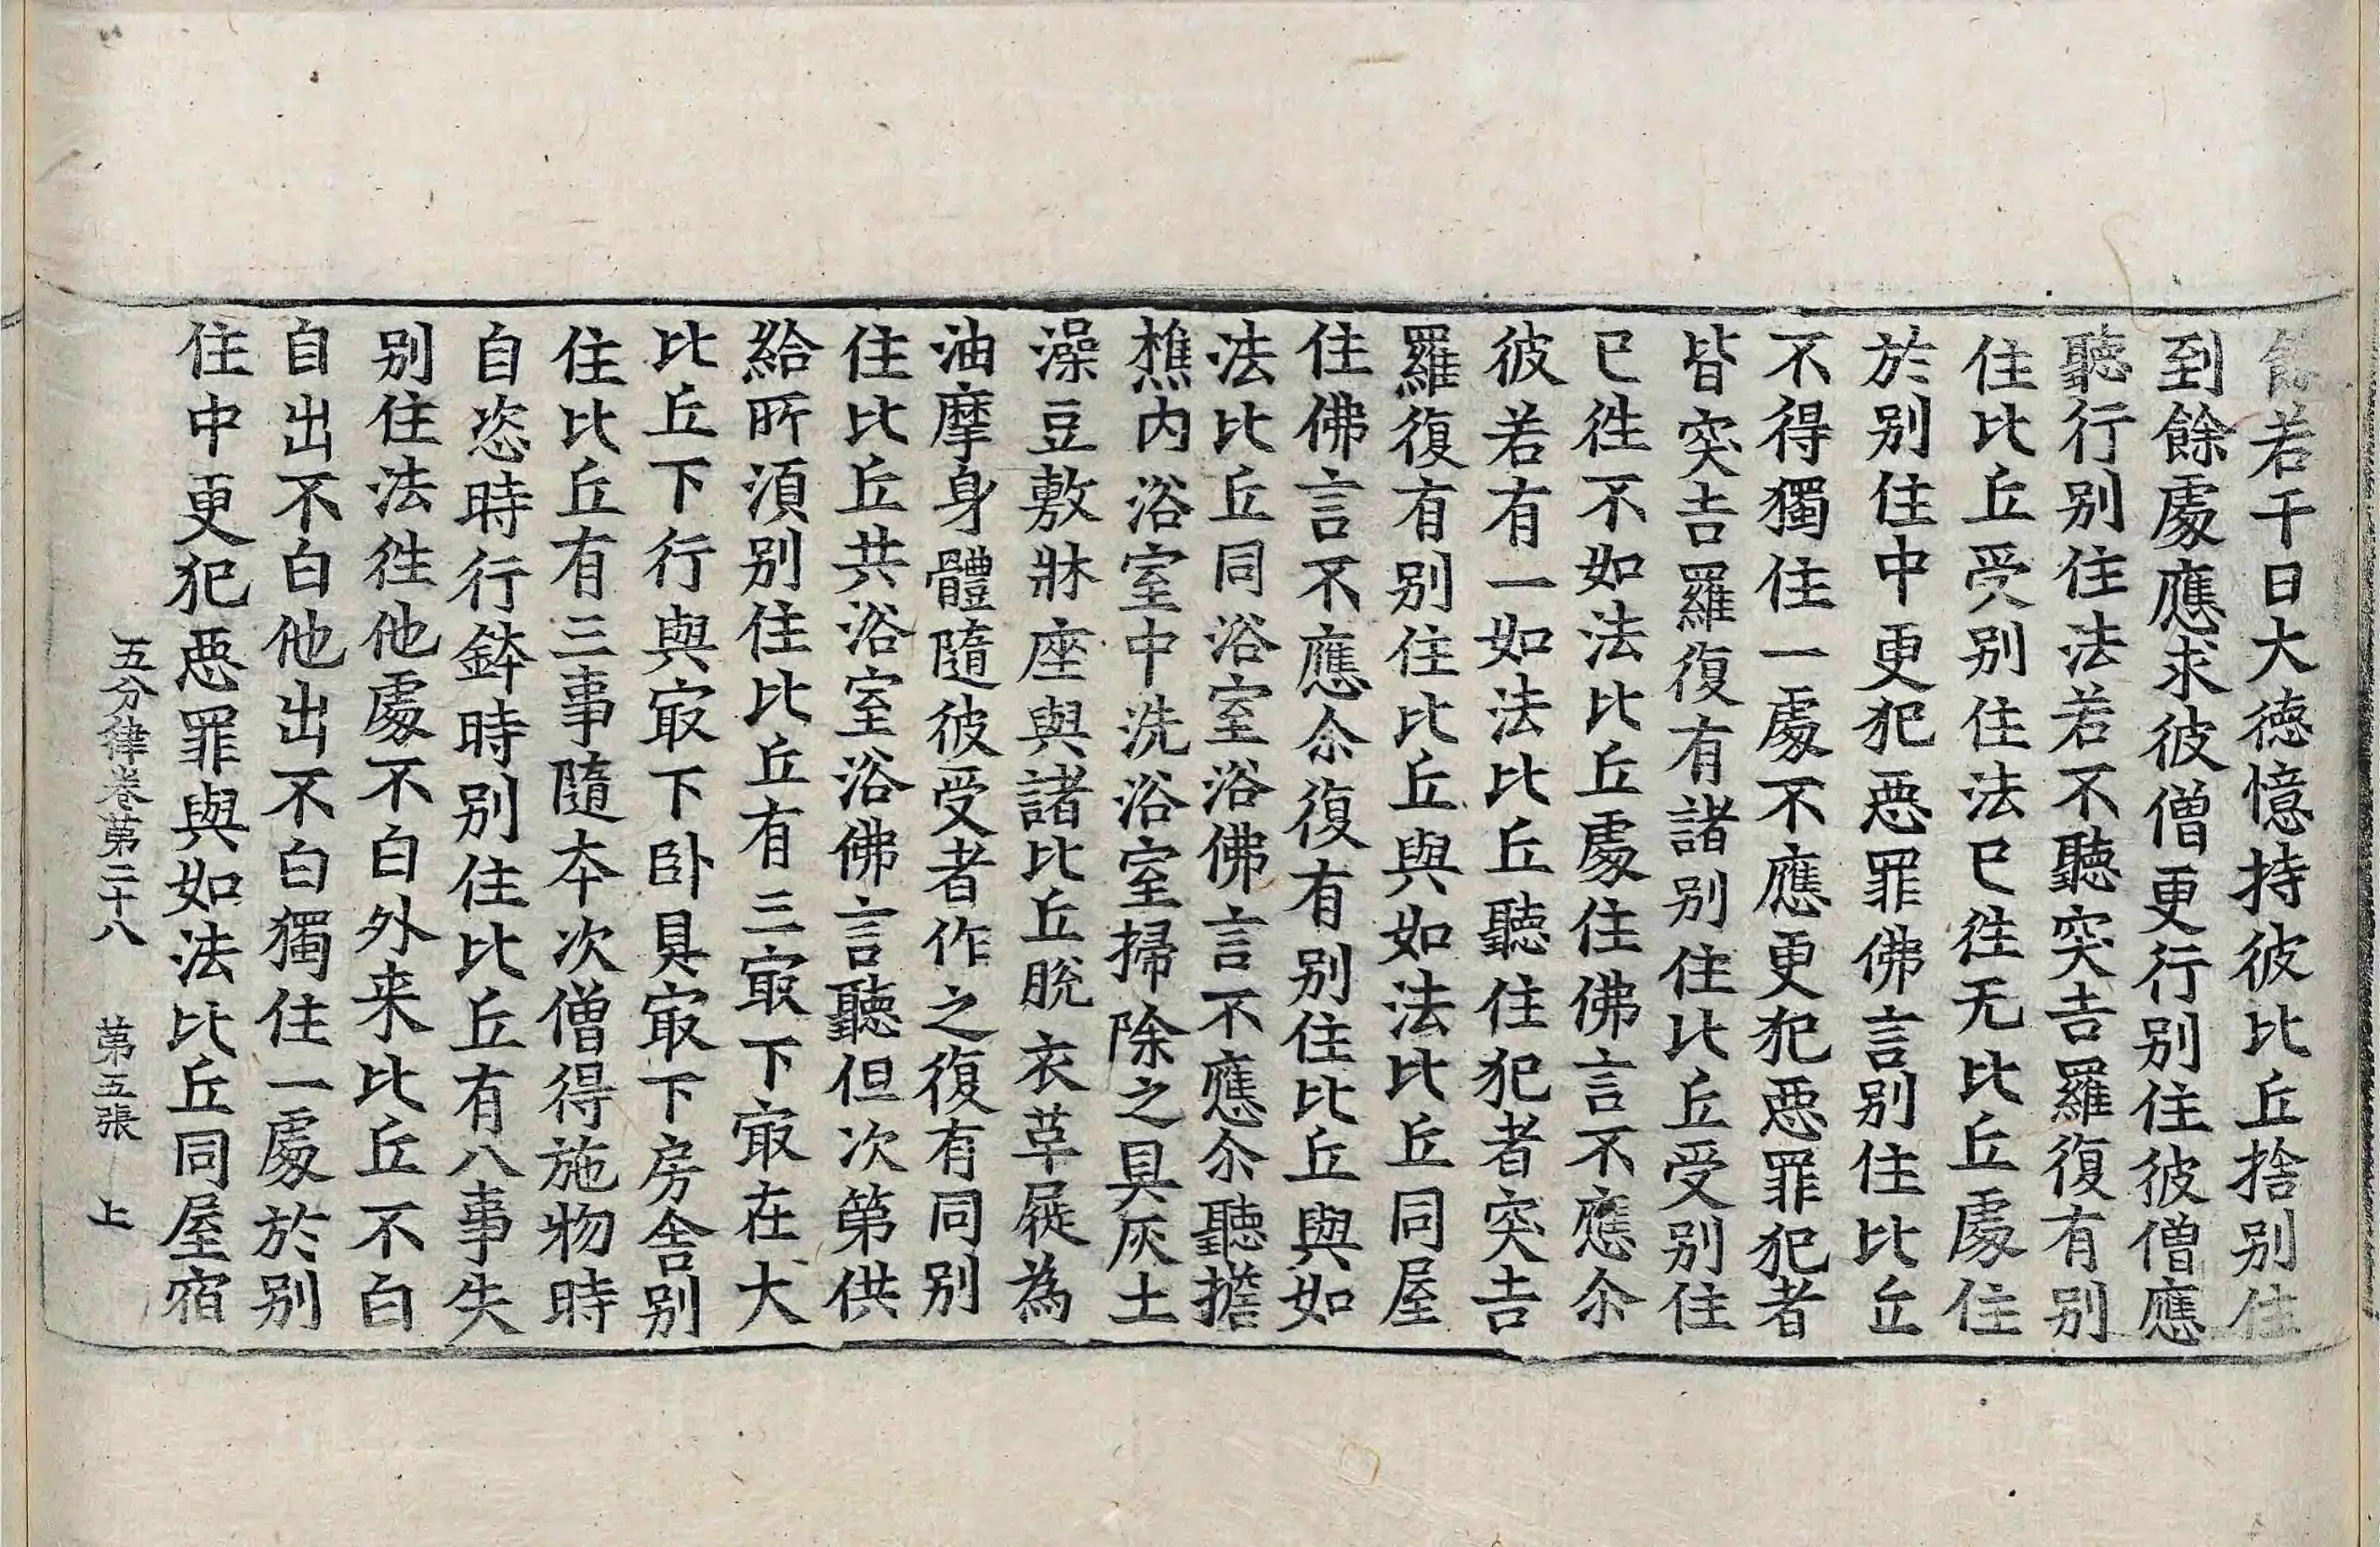 餘若干日大德憶持彼比丘捨別住
到餘處應求彼僧更行別住彼僧應
聽行別住法若不聽突吉羅復有別
住比丘受別住法已往无比丘處住
於別住中更犯惡罪佛言別住比丘
不得獨住一處不應更犯惡罪犯者
皆突吉羅復有諸別住比丘受別住
已往不如法比丘處住佛言不應尒
彼若有一如法比丘聽住犯者突吉
羅復有別住比丘與如法比丘同屋
住佛言不應尒復有別住比丘與如
法比丘同浴室浴佛言不應尒聽擔
樵內浴室中洗浴室掃除之具灰土
澡豆敷牀座與諸比丘脫衣革屣為
油摩身體隨彼受者作之復有同別
住比丘共浴室浴佛言聽但次第供
給所須別住比丘有三㝡下㝡在大
比丘下行與㝡下卧具㝡下房舍別
住比丘有三事隨本次僧得施物時
自恣時行鉢時別住比丘有八事失
別住法往他處不白外来比丘不白
自出不白他出不白獨住一處於別
住中更犯惡罪與如法比丘同屋宿
五分律卷第二十八 第五張 上